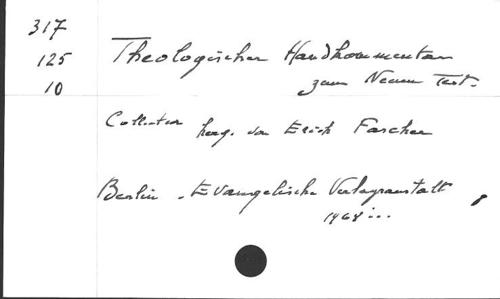 317
125
10
Theologischer Handkommentar
zum Neuen Test.
Collection herg. von Erich Fascher
Berlin - Evangelische Verlagsanstalt
1968...